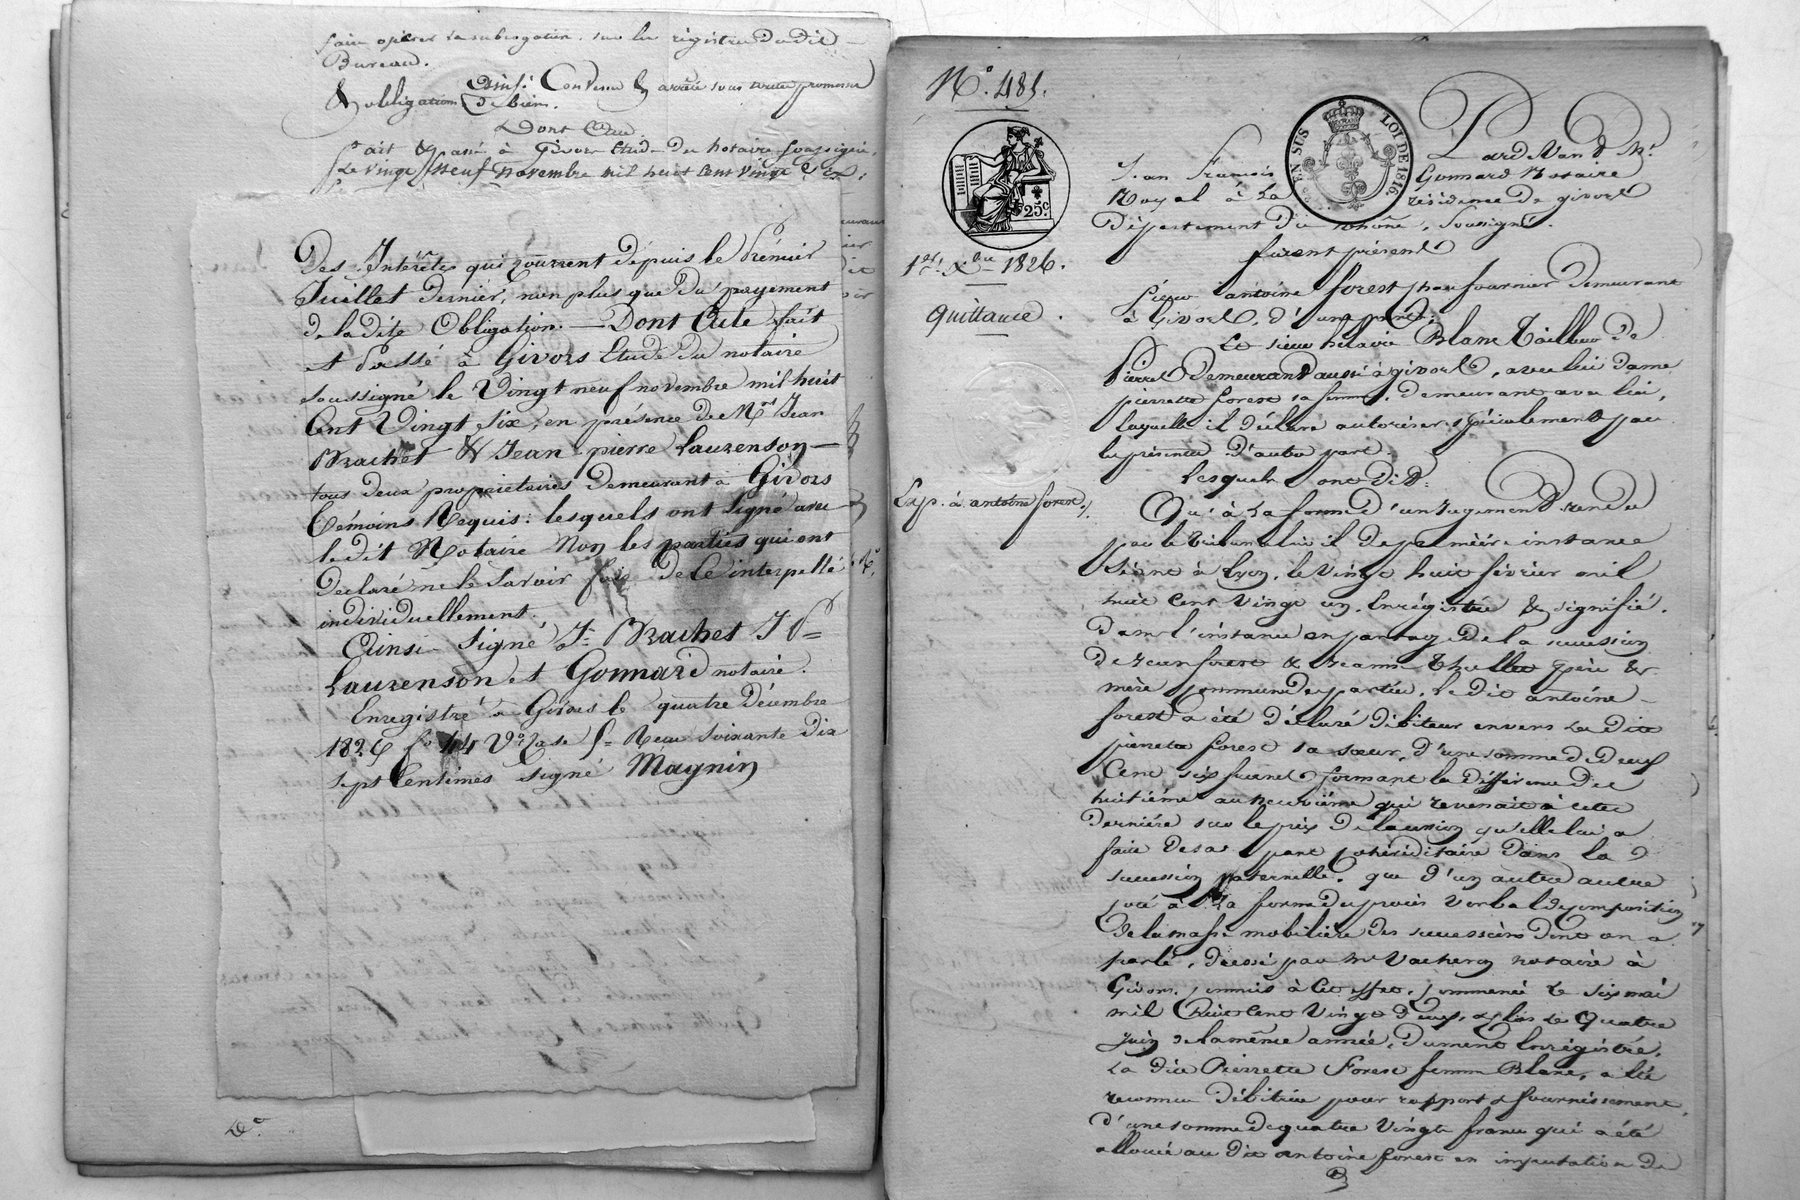 faire opérer la subrogation, sur les registres dudit
Bureau.
Ainsi Convenu & arrêté sous toute promesse
& obligation de biens.
Dont Acte.
fait & passé à Givors Etude du notaire soussigné,
Le vingt neuf Novembre mil huit cent vingt six,
Des Interêts qui courrent dépuis le Prémier
Juillet dernier, non plus que du payement
de la dite Obligation. — Dont Acte fait
et Passé à Givors Etude du notaire
soussigné le Vingt neuf novembre mil huit
Cent Vingt Six, en présence de Mrs Jean
Brachet & Jean pierre Laurenson —
tous deux propriétaires demeurant à Givors
Témoins Requis: lesquels ont signé avec
le dit Notaire Non les parties qui ont
declaré ne le savoir faire de ce interpellé
individuellement.
Ainsi Signé J. Brachet J P=
Laurenson et Gonnard notaire.
Enregistré à Givors le quatre Décembre
1826 fo 44 Vo Case Reçu soixante dix
sept Centimes signé Magnin
No. 485.
25c
EN SUS
LOI DE 1816
1er. Xbre 1826.
Quittance.
Exp. à antoine forest.
Pardevant Me.
Jean François Gonnard Notaire
Royal à la résidence de givors
Département du Rhône, Soussigné.
furent présent
Sieur antoine forest chaufournier demeurant
à Givors, d'une part;
Le sieur Blanc Tailleur de
Pierres demeurant aussi à givors, avec lui dame
pierrette forest sa femme, demeurant avec lui,
laquelle il déclare autoriser spécialement par
les présentes d'autre part.
Lesquels ont dit.
Qu'à la forme d'un jugement rendu
par le tribunal civil de première instance
Séant à Lyon, le vingt huit février mil
huit cent vingt un, Enrégistré & signifié.
dans l'instance en partage de la succession
de jean forest & jeanne père &
mère communs des parties, le dit antoine
forest a été déclaré débiteur envers la dite
pierrette forest sa sœur, d'une somme de deux
Cent six francs formant la différence du
huitième au neuvième qui revenait à cette
dernière sur le prix de la cession qu'elle lui a
faite de sa part cohéréditaire dans la
succession paternelle. que d'un autre
coté à la forme du procès verbal de composition
de la masse mobilière des successions dont on a
parlé, dressé par Me Vacheron notaire à
Givors, commis à cet effet, commencé le six mai
mil huit cent vingt deux, & clos le quatre
juin de la même année, dument Enrégistré,
La dite Pierrette Forest femme Blanc, a été
reconnue débitrice pour rapport & fournissement,
d'une somme de quatre vingt francs qui a été
allouée au dit antoine forest en imputation de